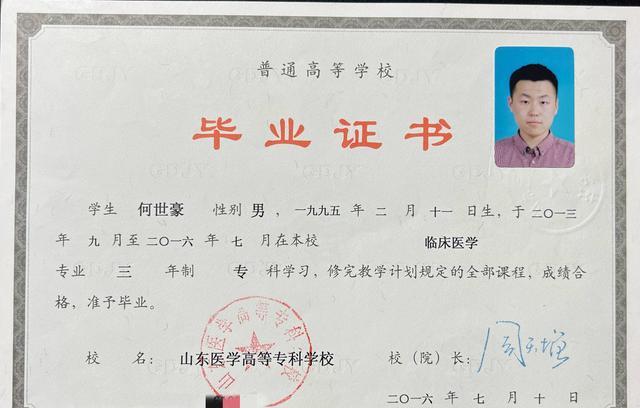 普通高等学校
毕业证书
学生 何世豪 性别 男，一九九五 年 二 月 十一 日生，于 二〇一三
年 九 月至 二〇一六 年 七 月在本校 临床医学
专业 三 年制 专 科学习，修完教学计划规定的全部课程，成绩合
格，准予毕业。
校 名： 山东医学高等专科学校 校（院）长：
山东医学高等专科学校
二〇一六 年 七 月 十 日